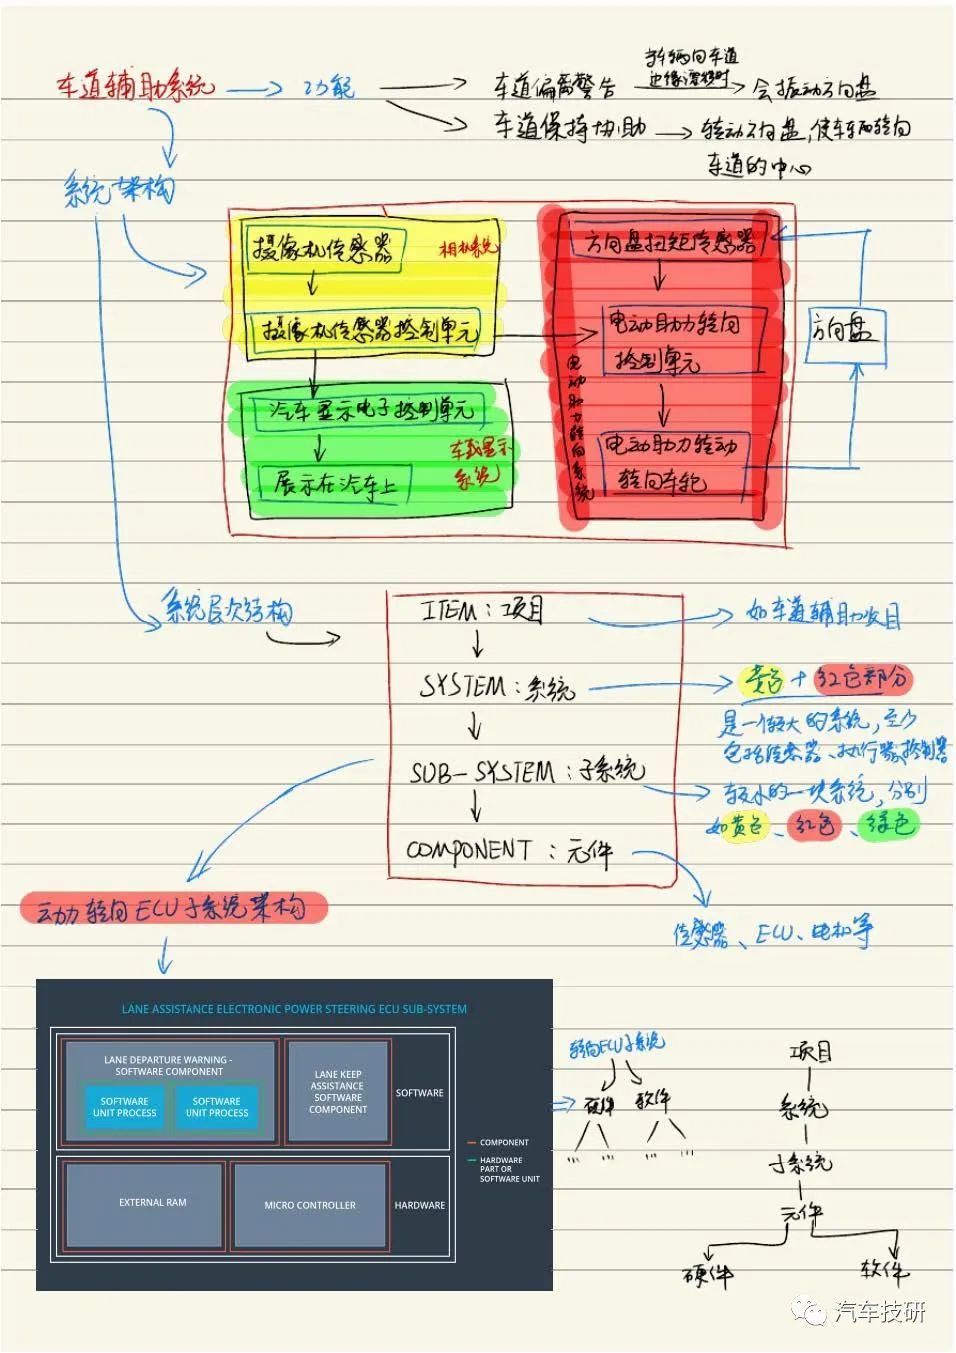 车道辅助系统
功能
车道偏离警告
当车辆向车道
边缘漂移时
会振动方向盘
车道保持协助
转动方向盘,使车辆转向
车道的中心
系统架构
摄像机传感器
相机系统
摄像机传感器控制单元
汽车显示电子控制单元
车载显示
系统
展示在汽车上
方向盘扭矩传感器
电动助力转向
控制单元
电动助力转向系统
电动助力转动
转向车轮
方向盘
系统层次结构
ITEM:项目
如车道辅助项目
SYSTEM:系统
黄色+红色部分
是一个较大的系统,至少
包括传感器、执行器、控制器
SUB-SYSTEM:子系统
较小的一块系统,分别
如黄色、红色、绿色
COMPONENT:元件
传感器、ECU、电机等
动力转向ECU子系统架构
LANE ASSISTANCE ELECTRONIC POWER STEERING ECU SUB-SYSTEM
LANE DEPARTURE WARNING -
SOFTWARE COMPONENT
SOFTWARE
UNIT PROCESS
SOFTWARE
UNIT PROCESS
LANE KEEP
ASSISTANCE
SOFTWARE
COMPONENT
SOFTWARE
COMPONENT
HARDWARE
PART OR
SOFTWARE UNIT
EXTERNAL RAM
MICRO CONTROLLER
HARDWARE
转向ECU子系统
硬件
软件
项目
系统
子系统
元件
硬件
软件
汽车技研